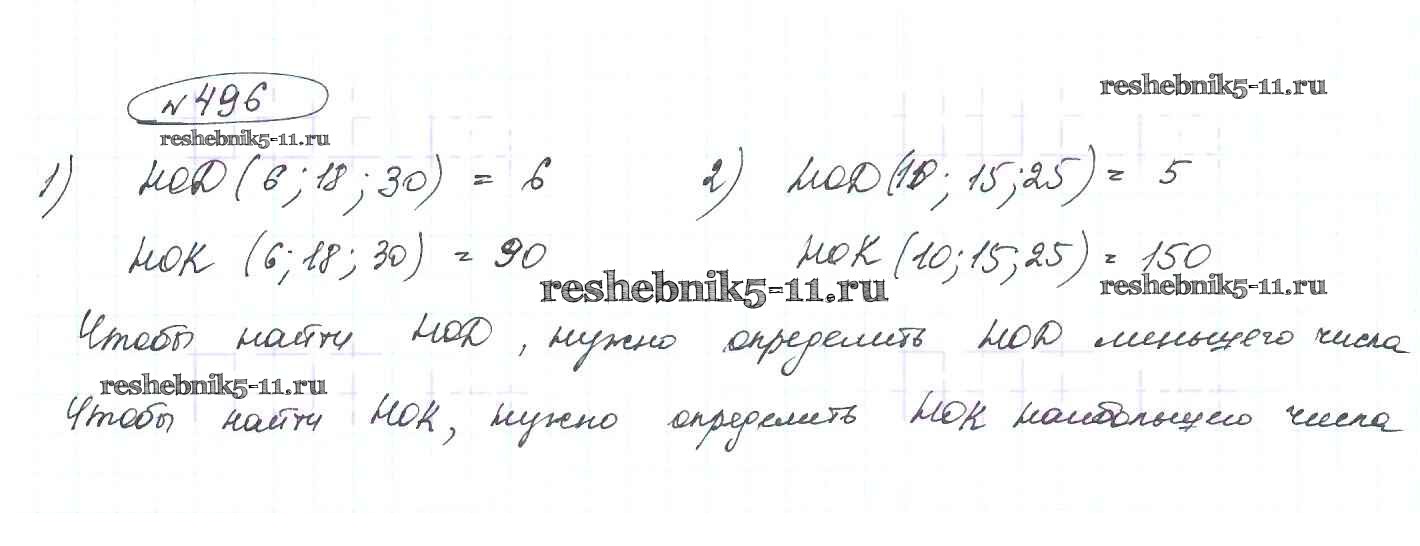 № 496
reshebnik5-11.ru
reshebnik5-11.ru
1) НОД (6; 18; 30) = 6
2) НОД (10; 15; 25) = 5
НОК (6; 18; 30) = 90
НОК (10; 15; 25) = 150
reshebnik5-11.ru
reshebnik5-11.ru
Чтобы найти НОД, нужно определить НОД меньшего числа
reshebnik5-11.ru
Чтобы найти НОК, нужно определить НОК наибольшего числа